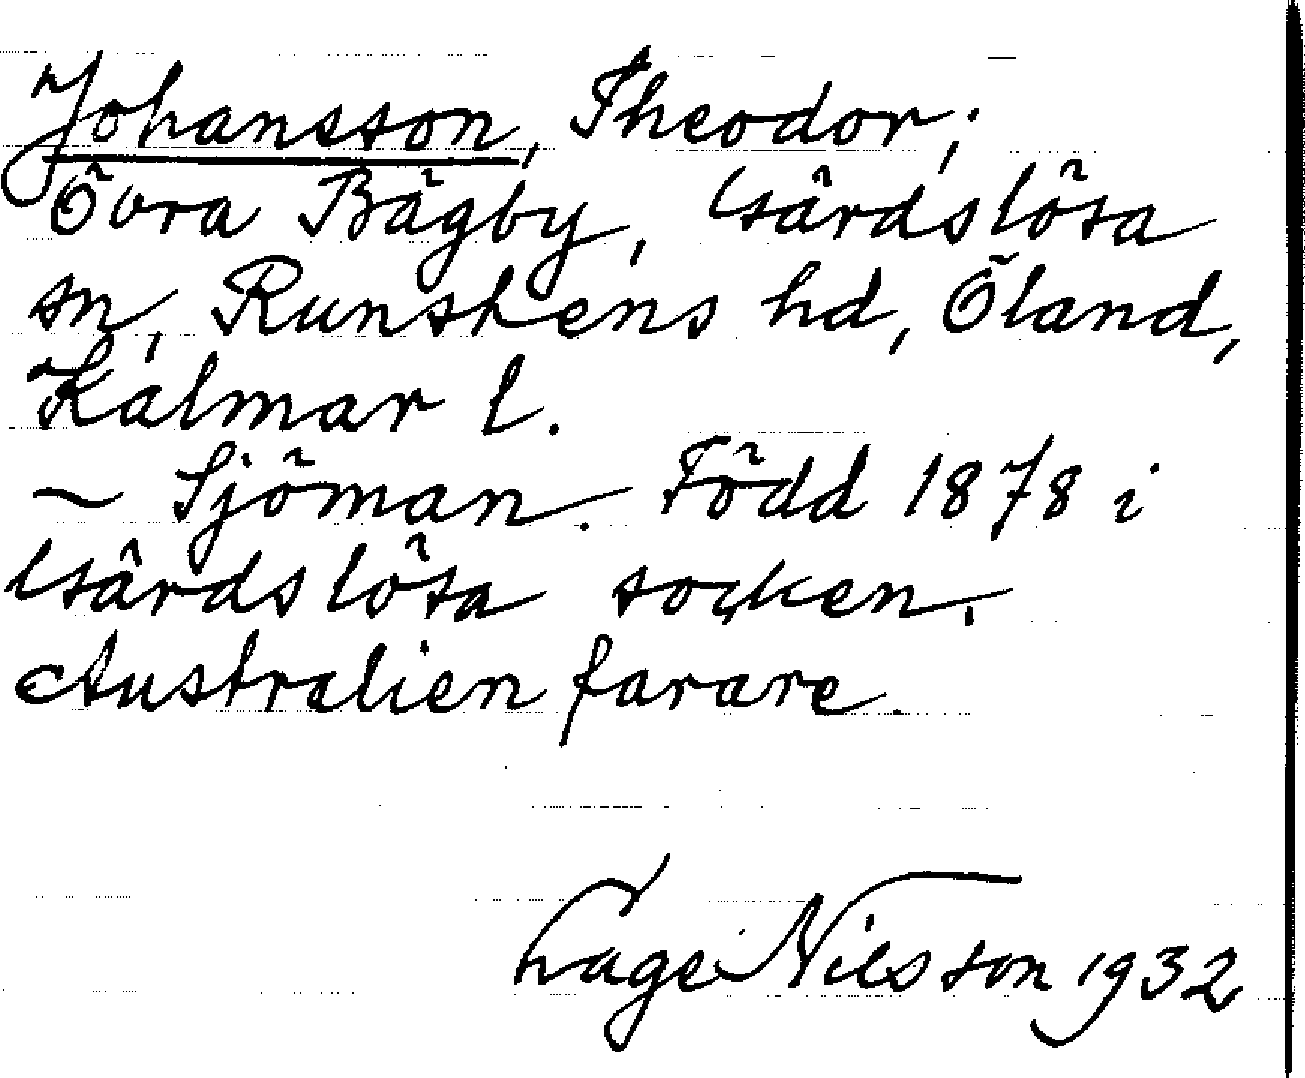 Johansson, Theodor;
Övra Bägby, Gärdslösa
sn, Runstens hd, Öland,
Kalmar l.
~ Sjöman. Född 1878 i
Gärdslösa socken.
Australienfarare.
Tage Nilsson 1932